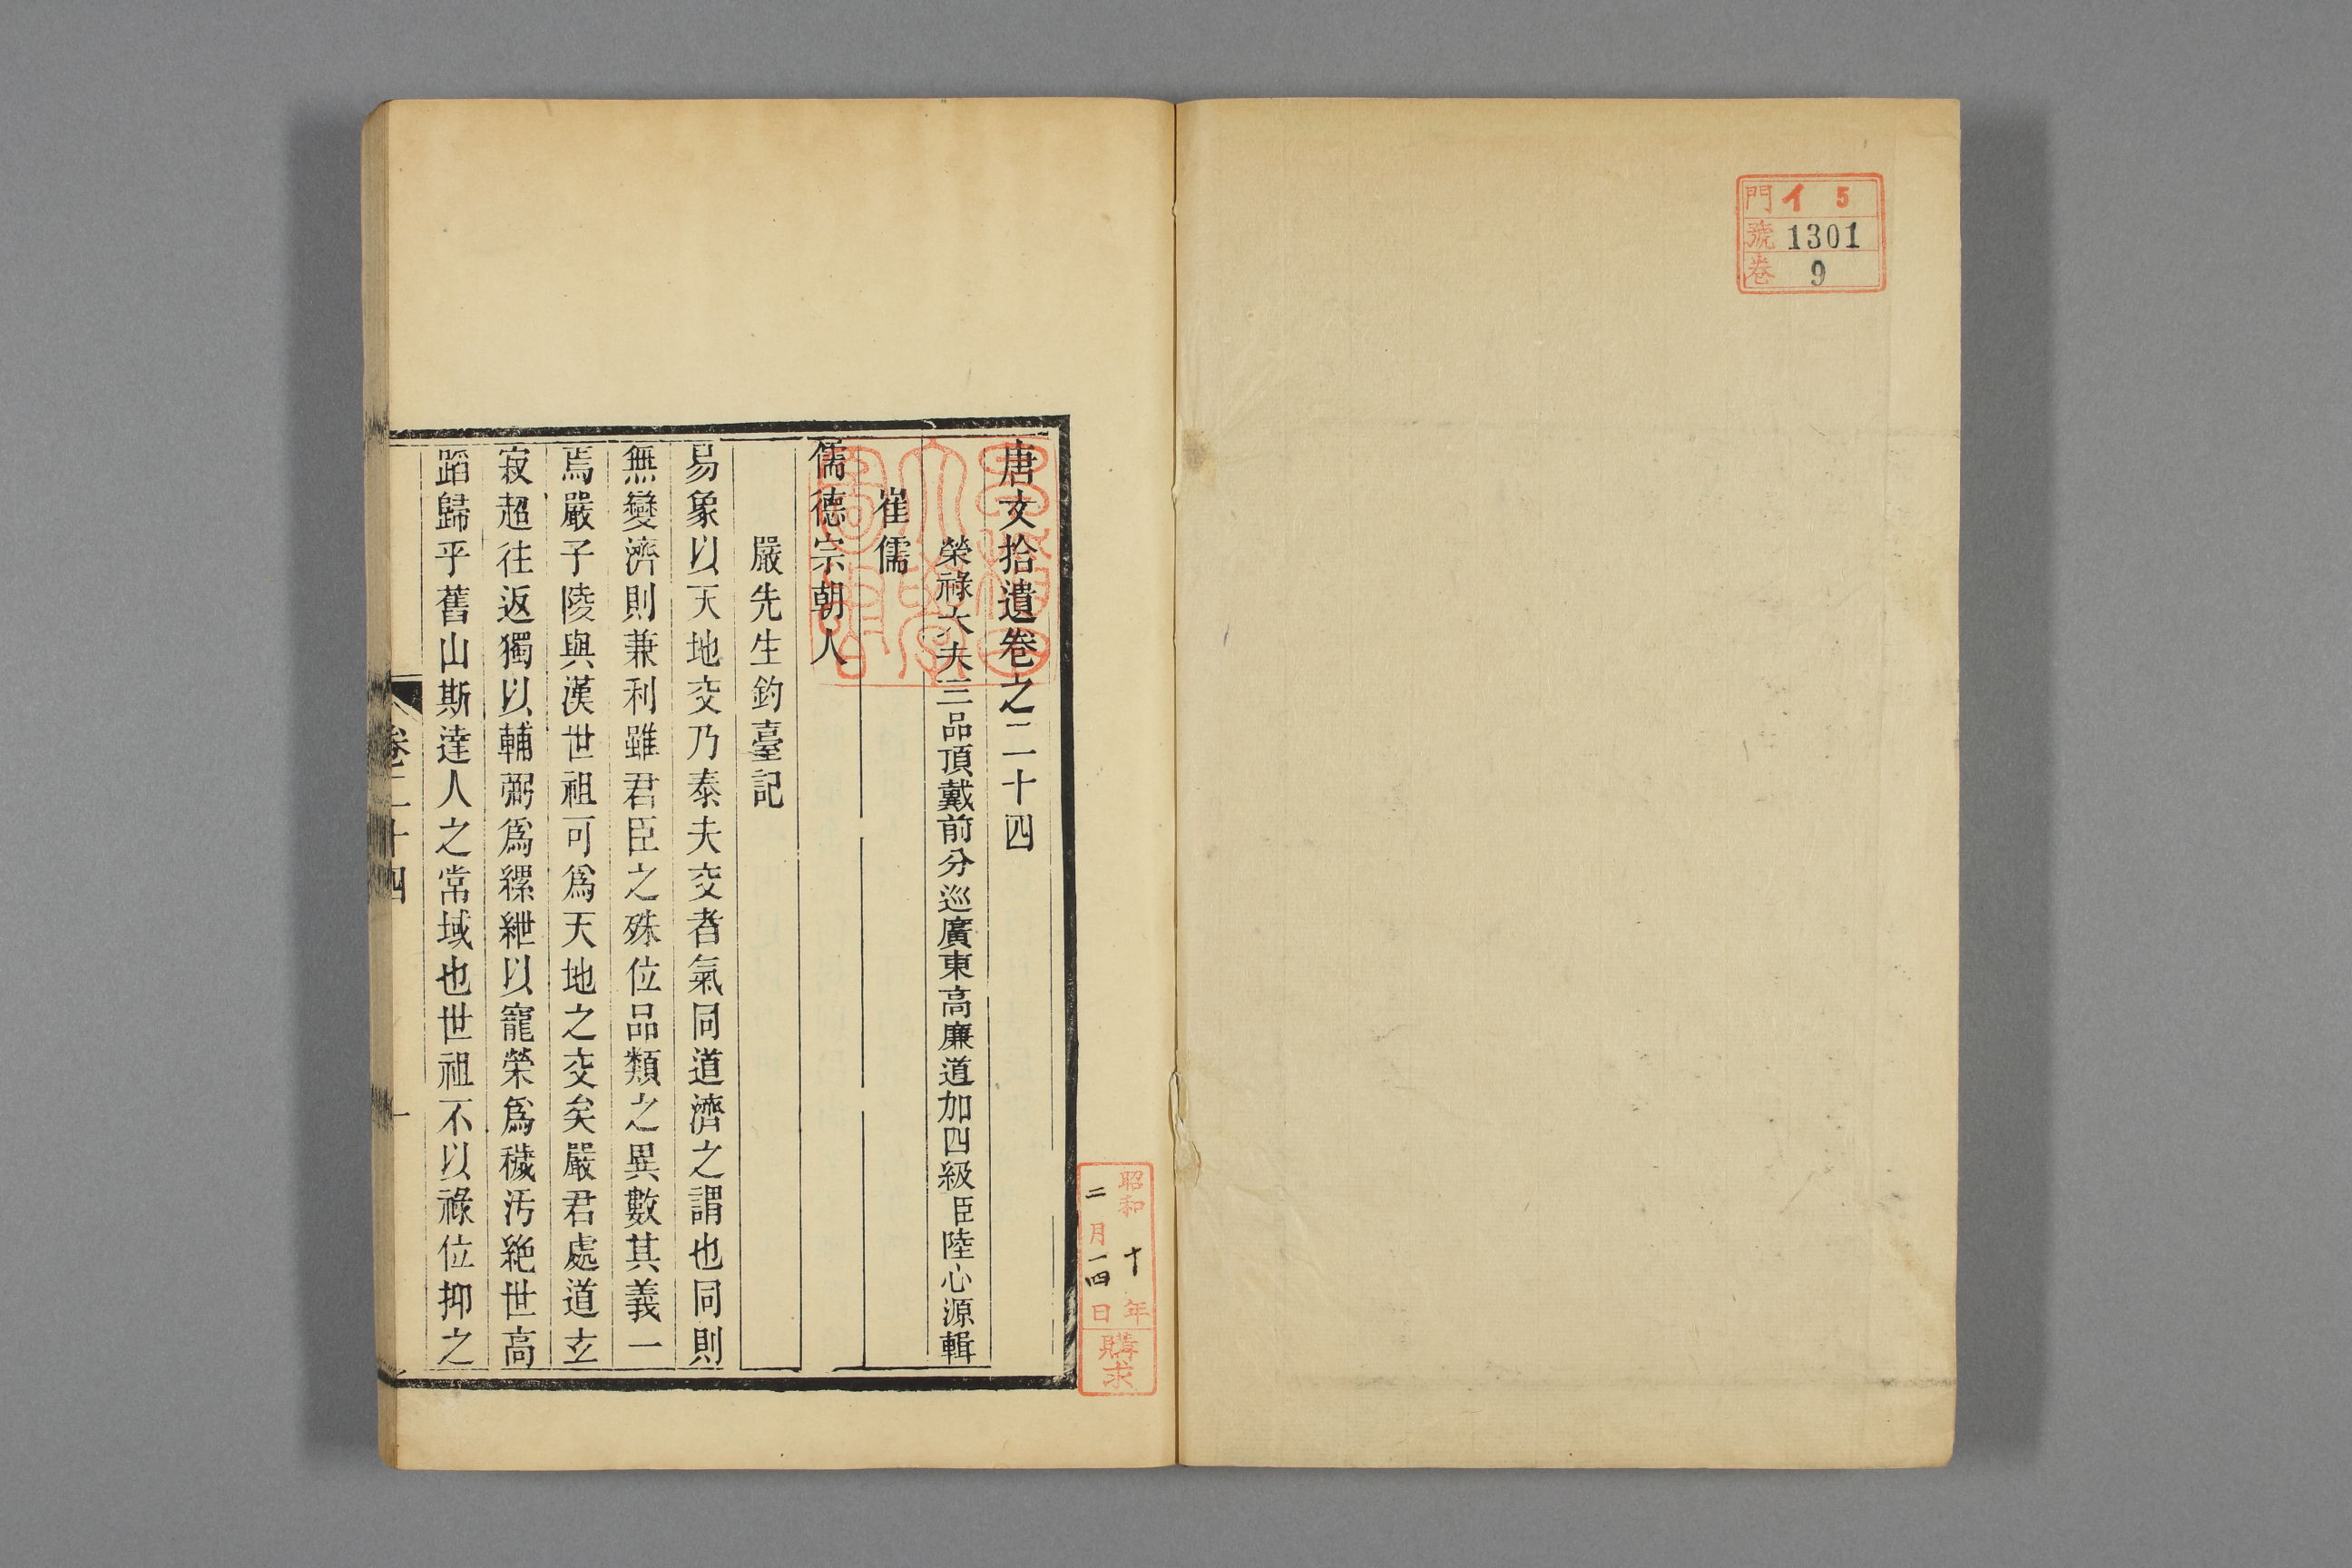 門 イ 5
號 1301
卷 9
唐文拾遺卷之二十四
榮祿大夫三品頂戴前分巡廣東高廉道加四級臣陸心源輯
崔儒
儒德宗朝人
嚴先生釣臺記
易象以天地交乃泰夫交者氣同道濟之謂也同則
無變濟則兼利雖君臣之殊位品類之異數其義一
焉嚴子陵與漢世祖可爲天地之交矣嚴君處道玄
寂超往返獨以輔弼爲縲紲以寵榮爲穢汚絕世高
蹈歸乎舊山斯達人之常域也世祖不以祿位抑之
卷二十四
一
昭和十年
二月一四日
購求